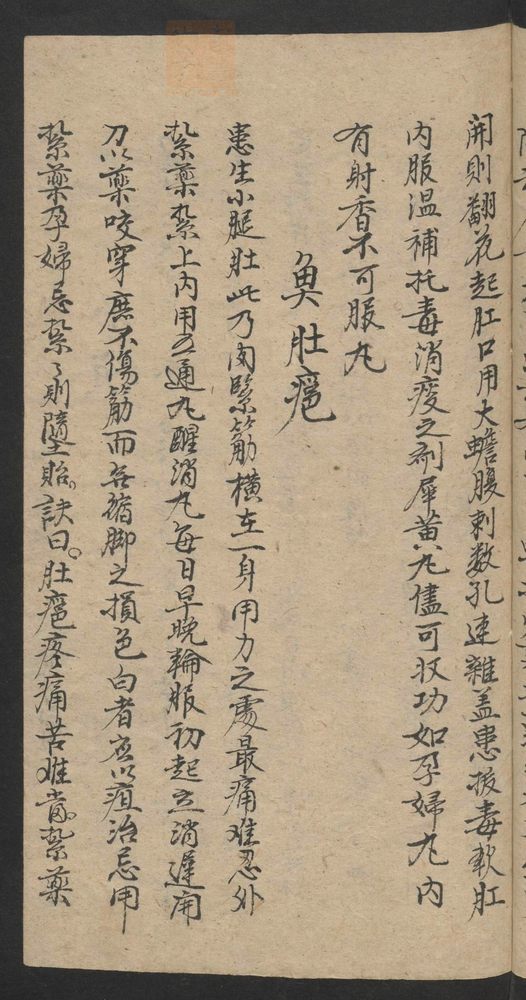 開則翻花起肛口用大蟾腹刺数孔連雜盖患拔毒軟肛
内服温補托毒消痰之剤犀黄丸儘可収功如孕婦丸内
有射香不可服丸
魚肚癰
患生小腿肚此乃肉緊筋横在一身用力之處最痛难忍外
紮藥紮上内用五通丸醒消丸每日早晩輪服初起立消遲用
刀以藥咬穿庶不傷筋而無縮脚之損色白者应以疽治忌用
紮藥孕婦忌紮々則墮胎。訣曰。肚癰疼痛苦难當。紮藥